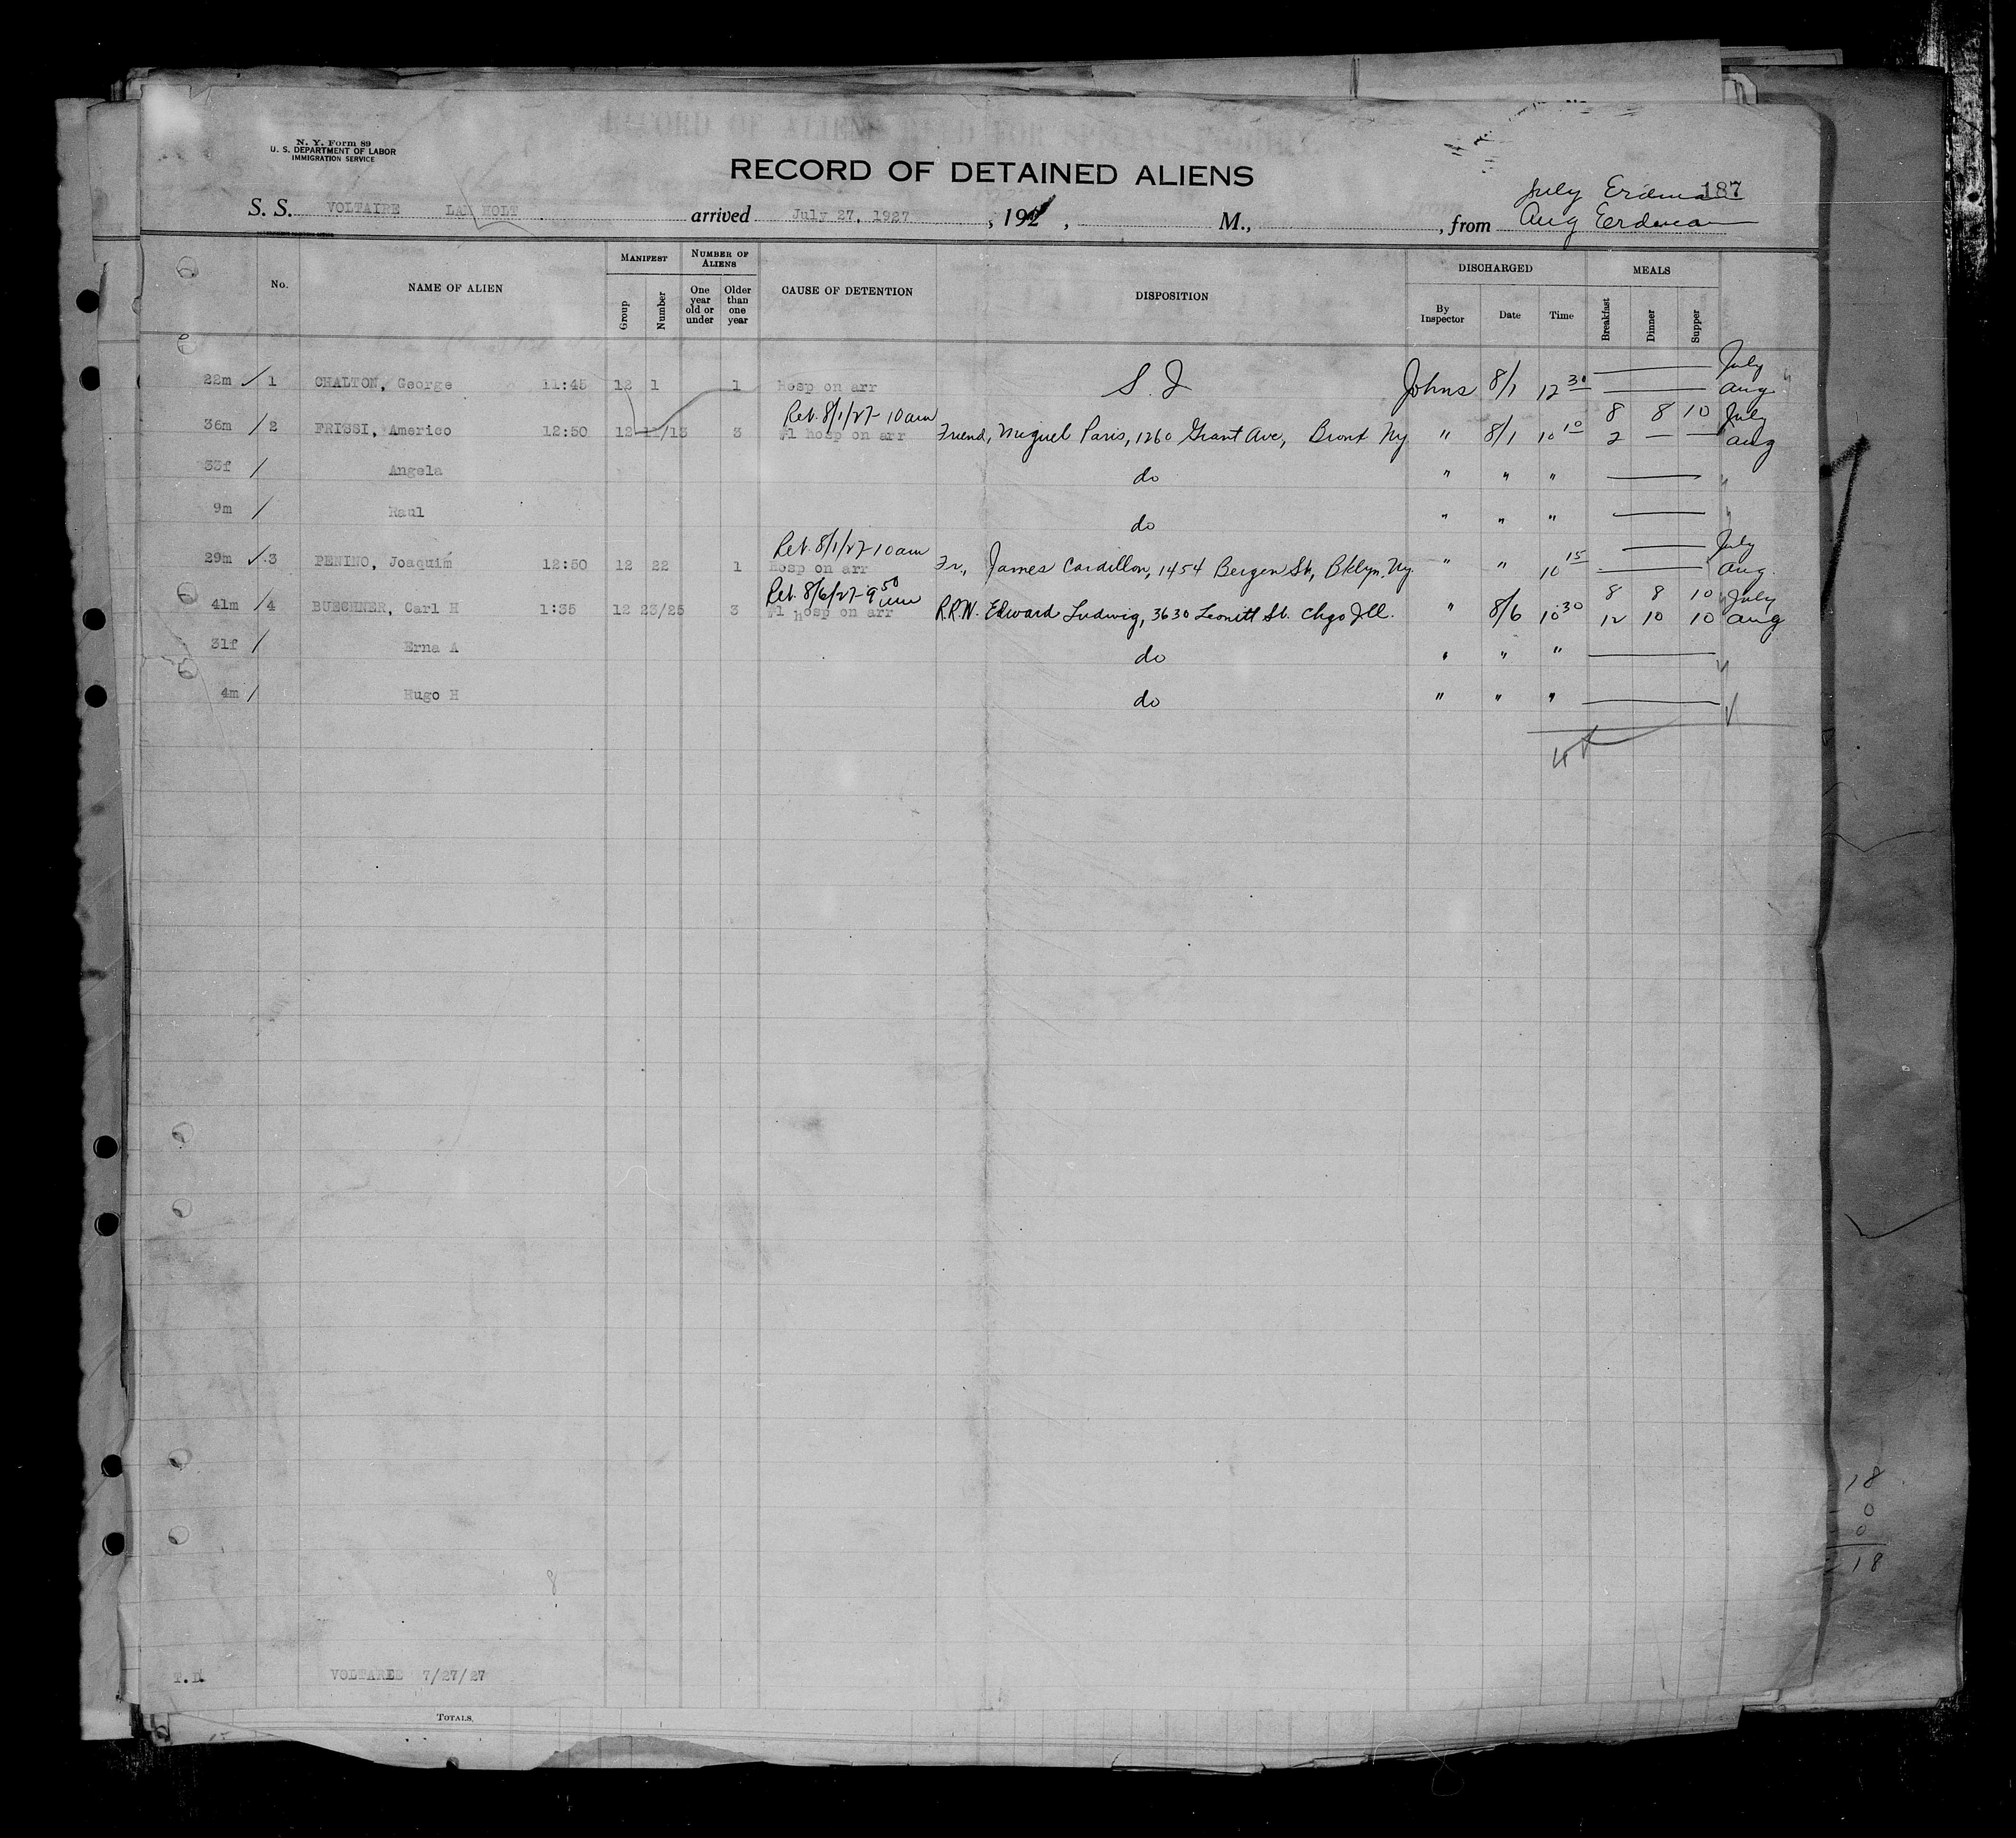 N. Y. Form 89
U. S. DEPARTMENT OF LABOR
IMMIGRATION SERVICE
RECORD OF DETAINED ALIENS
187
July Erdman
S. S. VOLTAIRE LAM HOLT arrived July 27, 1927, 192 , M., , from Aug Erdman
No. NAME OF ALIEN MANIFEST Group Number NUMBER OF ALIENS One year old or under Older than one year CAUSE OF DETENTION DISPOSITION DISCHARGED By Inspector Date Time MEALS Breakfast Dinner Supper
July
22m 1 CHALTON, George 11:45 12 1 1 hosp on arr S. I Johns 8/1 12 30 Aug
Ret. 8/1/27 10am 8 8 10 July
36m 2 FRISSI, Americo 12:50 12 11/13 3 #1 hosp on arr Friend, Miguel Paris, 1260 Grant Ave, Bronx Ny " 8/1 10 10 2 — — Aug
33f Angela do " " "
9m Raul do " " "
Ret. 8/1/27 10am July
29m 3 PENINO, Joaquim 12:50 12 22 1 hosp on arr Fr., James Cardillon, 1454 Bergen St, Bklyn. Ny " " 10 15 Aug.
Ret. 8/6/27 9 50 am 8 8 10 July
41m 4 BUECHNER, Carl H 1:35 12 23/25 3 #1 hosp on arr R.R.W. Edward Ludwig, 3630 St. Chgo Ill. " 8/6 10 30 12 10 10 Aug
31f Erna A do " " "
4m Hugo H do " " "
18
0
0
18
8
T.D. VOLTAREE 7/27/27
TOTALS,